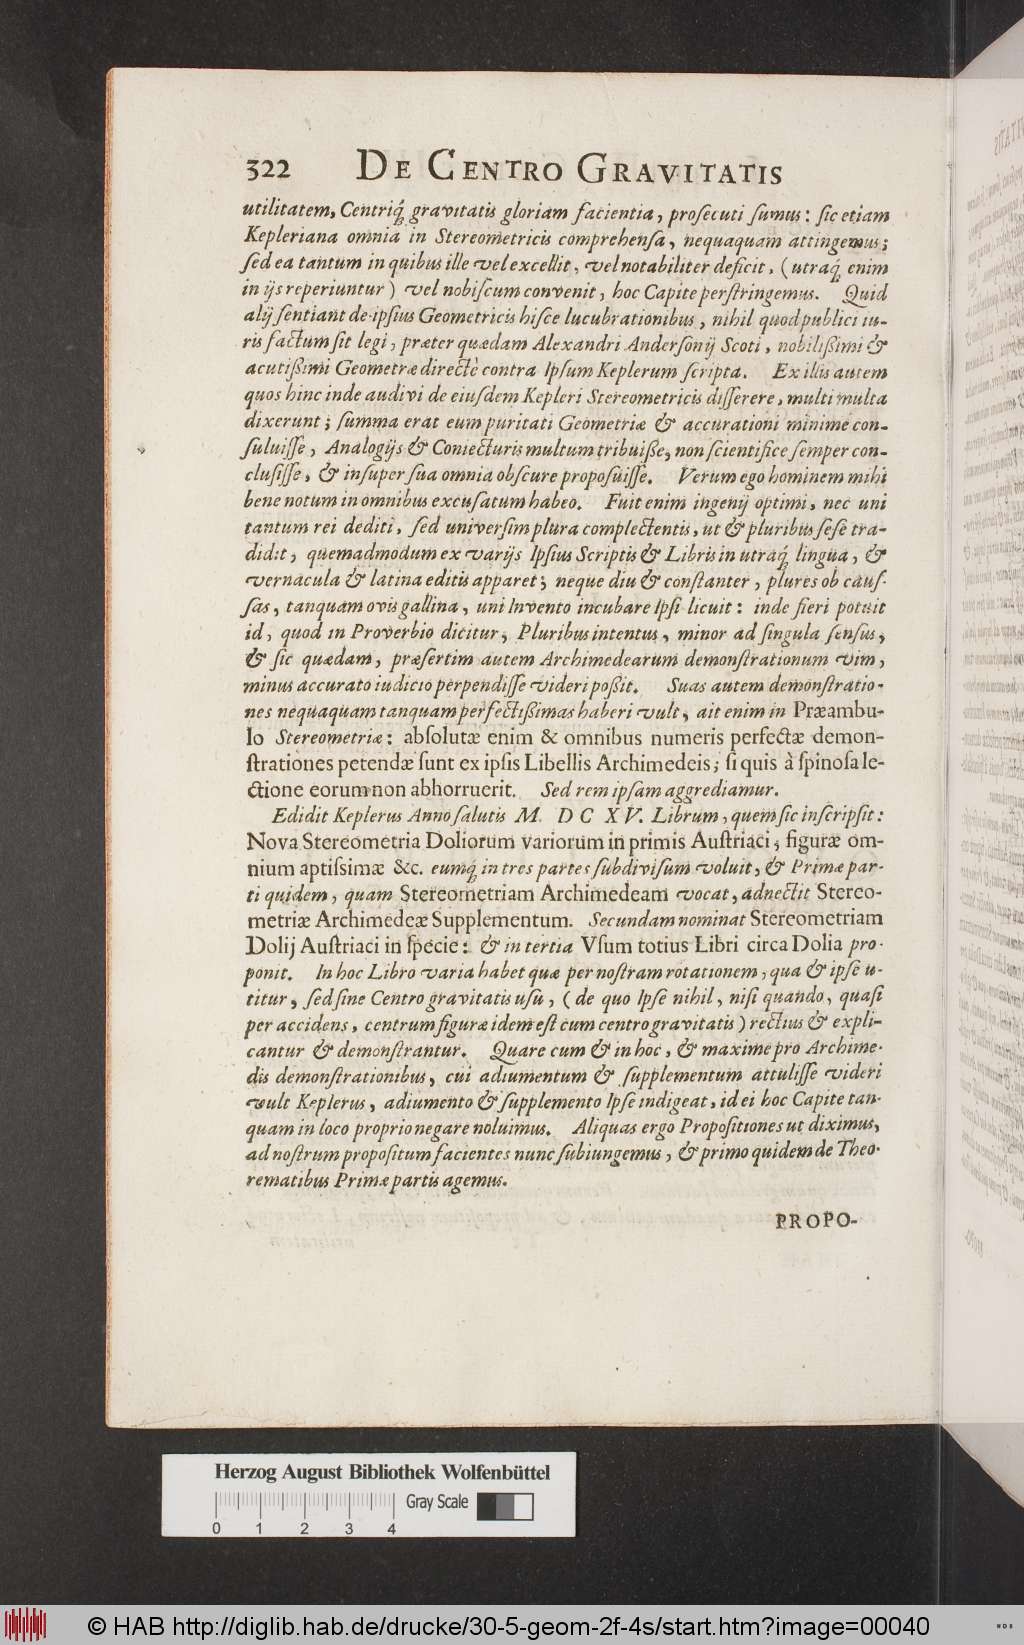 322 DE CENTRO GRAVITATIS
utilitatem, Centriq́ꝫ gravitatis gloriam facientia, proſecuti ſumus: ſic etiam
Kepleriana omnia in Stereometricis comprehenſa, nequaquam attingemus;
ſed ea tantum in quibus ille vel excellit, vel notabiliter deficit, (utraq́ꝫ enim
in ijs reperiuntur) vel nobiſcum convenit, hoc Capite perſtringemus. Quid
alij ſentiant de ipſius Geometricis hiſce lucubrationibus, nihil quod publici iu-
ris factum ſit legi, præter quædam Alexandri Anderſonij Scoti, nobilißimi &
acutißimi Geometræ directè contra Ipſum Keplerum ſcripta. Ex illis autem
quos hinc inde audivi de eiuſdem Kepleri Stereometricis diſſerere, multi multa
dixerunt; ſumma erat eum puritati Geometriæ & accurationi minimè con-
ſuluiſſe, Analogijs & Coniecturis multum tribuiße, non ſcientifice ſemper con-
cluſiſſe, & inſuper ſua omnia obſcure propoſuiſſe. Verum ego hominem mihi
bene notum in omnibus excuſatum habeo. Fuit enim ingenij optimi, nec uni
tantum rei dediti, ſed univerſim plura complectentis, ut & pluribus ſeſe tra-
didit, quemadmodum ex varijs Ipſius Scriptis & Libris in utraq́ꝫ lingua, &
vernacula & latina editis apparet; neque diu & conſtanter, plures ob cauſ-
ſas, tanquam ovis gallina, uni Invento incubare Ipſi licuit: inde fieri potuit
id, quod in Proverbio dicitur, Pluribus intentus, minor ad ſingula ſenſus,
& ſic quædam, præſertim autem Archimedearum demonſtrationum vim,
minus accurato iudicio perpendiſſe videri poßit. Suas autem demonſtratio-
nes nequaquam tanquam perfectißimas haberi vult, ait enim in Præambu-
lo Stereometriæ: abſolutæ enim & omnibus numeris perfectæ demon-
ſtrationes petendæ ſunt ex ipſis Libellis Archimedeis; ſi quis à ſpinoſa le-
ctione eorum non abhorruerit. Sed rem ipſam aggrediamur.
Edidit Keplerus Anno ſalutis M. D C X V. Librum, quem ſic inſcripſit:
Nova Stereometria Doliorum variorum in primis Auſtriaci, figuræ om-
nium aptiſsimæ &c. eumq́ꝫ in tres partes ſubdiviſum voluit, & Primæ par-
ti quidem, quam Stereometriam Archimedeam vocat, adnectit Stereo-
metriæ Archimedeæ Supplementum. Secundam nominat Stereometriam
Dolij Auſtriaci in ſpecie: & in tertia Vſum totius Libri circa Dolia pro-
ponit. In hoc Libro varia habet quæ per noſtram rotationem, qua & ipſe u-
titur, ſed ſine Centro gravitatis uſu, (de quo Ipſe nihil, niſi quando, quaſi
per accidens, centrum figuræ idem eſt cum centro gravitatis) rectius & expli-
cantur & demonſtrantur. Quare cum & in hoc, & maxime pro Archime-
dis demonſtrationibus, cui adiumentum & ſupplementum attuliſſe videri
vult Keplerus, adiumento & ſupplemento Ipſe indigeat, id ei hoc Capite tan-
quam in loco proprio negare noluimus. Aliquas ergo Propoſitiones ut diximus,
ad noſtrum propoſitum facientes nunc ſubiungemus, & primo quidem de Theo-
rematibus Primæ partis agemus.
PROPO-
Herzog August Bibliothek Wolfenbüttel
Gray Scale
0 1 2 3 4
© HAB http://diglib.hab.de/drucke/30-5-geom-2f-4s/start.htm?image=00040